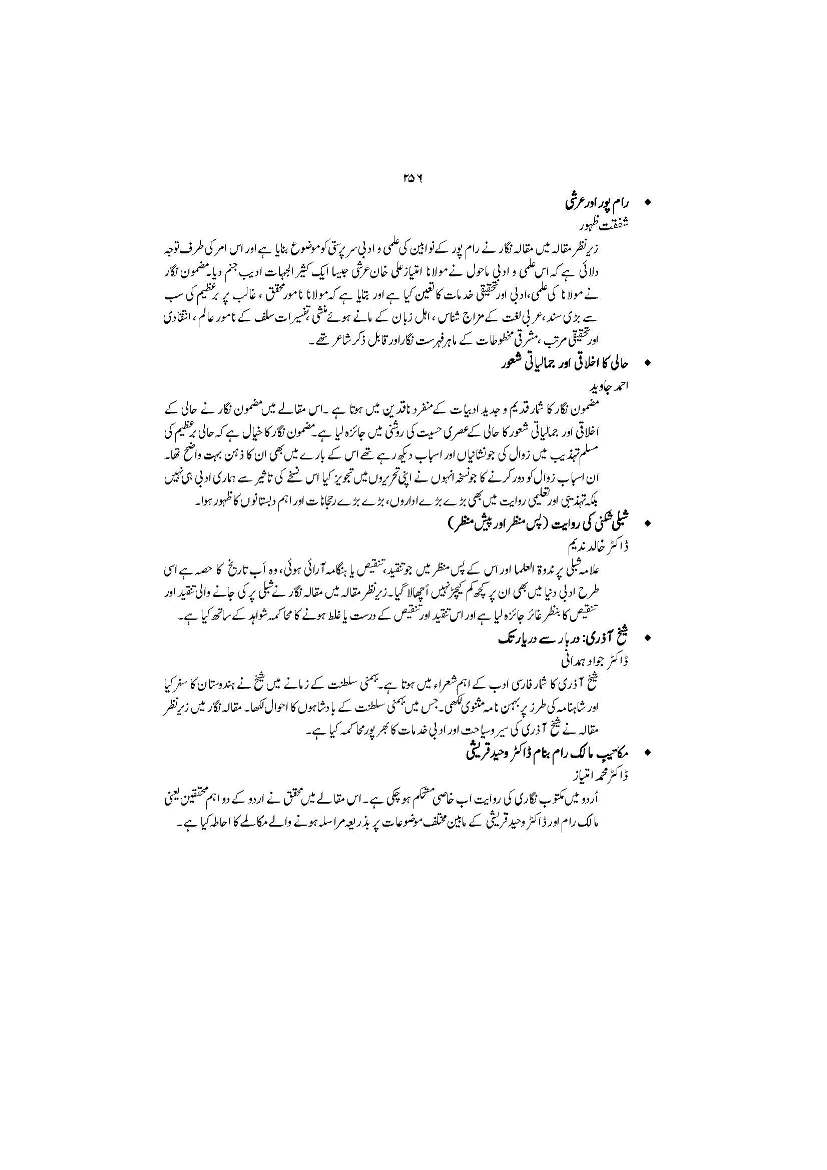 ۲۵۶
♦ رام پور اور عرشی
شفقت ظہور
زیرِنظر مقالہ میں مقالہ نگار نے رام پور کے نوابین کی علمی و ادبی سرپرستی کو موضوع بنایا ہے اور اس امر کی طرف توجہ
دلائی ہے کہ اس علمی و ادبی ماحول نے مولانا امتیاز علی خان عرشی جیسا ایک کثیر الجہات ادیب جنم دیا۔ مضمون نگار
نے مولانا کی علمی، ادبی اور تحقیقی خدمات کا تعین کیا ہے اور بتایا ہے کہ مولانا نامور محقق ، غالب پر برعظیم کی سب
سے بڑی سند، عربی لغت کے مزاج شناس ، اہل زبان کے مانے ہوئے منشی، تفسیرات سلف کے نامور عالم ، انتقادی
اور تحقیقی مرتب ، مشرقی مخطوطات کے ماہر فہرست نگار اور قابل ذکر شاعر تھے۔
♦ حالی کا اخلاقی اور جمالیاتی شعور
احمد جاوید
مضمون نگار کا شمار قدیم و جدید ادبیات کے منفرد ناقدین میں ہوتا ہے ۔اس مقالے میں مضمون نگار نے حالی کے
اخلاقی اور جمالیاتی شعور کا حالی کے عصری حسیت کی روشنی میں جائزہ لیا ہے۔ مضمون نگار کا خیال ہے کہ حالی برعظیم کی
مسلم تہذیب میں زوال کی جو نشانیاں اور اسباب دیکھ رہے تھے اس کے بارے میں بھی ان کا ذہن بہت واضح تھا۔
ان اسباب زوال کو دور کرنے کا جو نسخہ انہوں نے اپنی تحریروں میں تجویز کیا اس نسخے کی تاثیر سے ہماری ادبی ہی نہیں
بلکہ تہذیبی اور تعلیمی روایت میں بھی بڑے بڑے اداروں، بڑے بڑے رجحانات اور اہم دبستانوں کا ظہور ہوا۔
♦ شبلی شکنی کی روایت (پس منظر اور پیش منظر)
ڈاکٹر خالد ندیم
علامہ شبلی پر ندوۃ العلما اور اس کے پس منظر میں جو تنقید، تنقیص یا ہنگامہ آرائی ہوئی، وہ اَب تاریخ کا حصہ ہے اسی
طرح ادبی دنیا میں بھی ان پر کچھ کم کیچڑ نہیں اُچھالا گیا۔ زیرِنظر مقالہ میں مقالہ نگار نے شبلی پر کی جانے والی تنقید اور
تنقیص کا بنظر غائر جائزہ لیا ہے اور اس تنقید اور تنقیص کے درست یا غلط ہونے کا محاکمہ شواہد کے ساتھ کیا ہے۔
♦ شیخ آذری: دربار سے دربار تک
ڈاکٹر جواد ہمدانی
شیخ آذری کا شمار فارسی ادب کے اہم شعراء میں ہوتا ہے۔ بہمنی سلطنت کے زمانے میں شیخ نے ہندوستان کا سفر کیا
اور شاہنامہ کی طرز پر بہمن نامہ مثنوی لکھی۔ جس میں بہمنی سلطنت کے بادشاہوں کا احوال لکھا۔ مقالہ نگار میں زیرِنظر
مقالہ نے شیخ آذری کی سیر و سیاحت اور ادبی خدمات کا بھر پور محاکمہ کیا ہے۔
♦ مکاتیبِ مالک رام بنام ڈاکٹر وحید قریشی
ڈاکٹر محمد امتیاز
اُردو میں مکتوب نگاری کی روایت اب خاصی مستحکم ہو چکی ہے۔ اس مقالے میں محقق نے اردو کے دو اہم محققین یعنی
مالک رام اور ڈاکٹر وحید قریشی کے مابین مختلف موضوعات پر بذریعہ مراسلہ ہونے والے مکالمے کا احاطہ کیا ہے۔